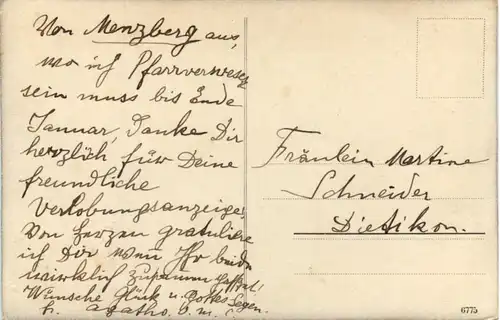 Von Menzberg aus,
wo ich Pfarrverweser
sein muss bis Ende
Januar, Danke Dir
herzlich für Deine
freundliche
Verlobungsanzeige.
Von Herzen gratuliere
ich Dir wenn Ihr beide
wirklich zusammen passt!
Wünsche Glück u. Gottes Segen.
P. Agatho. O. M. C.
Fräulein Martine
Schneider
Dietikon.
6775